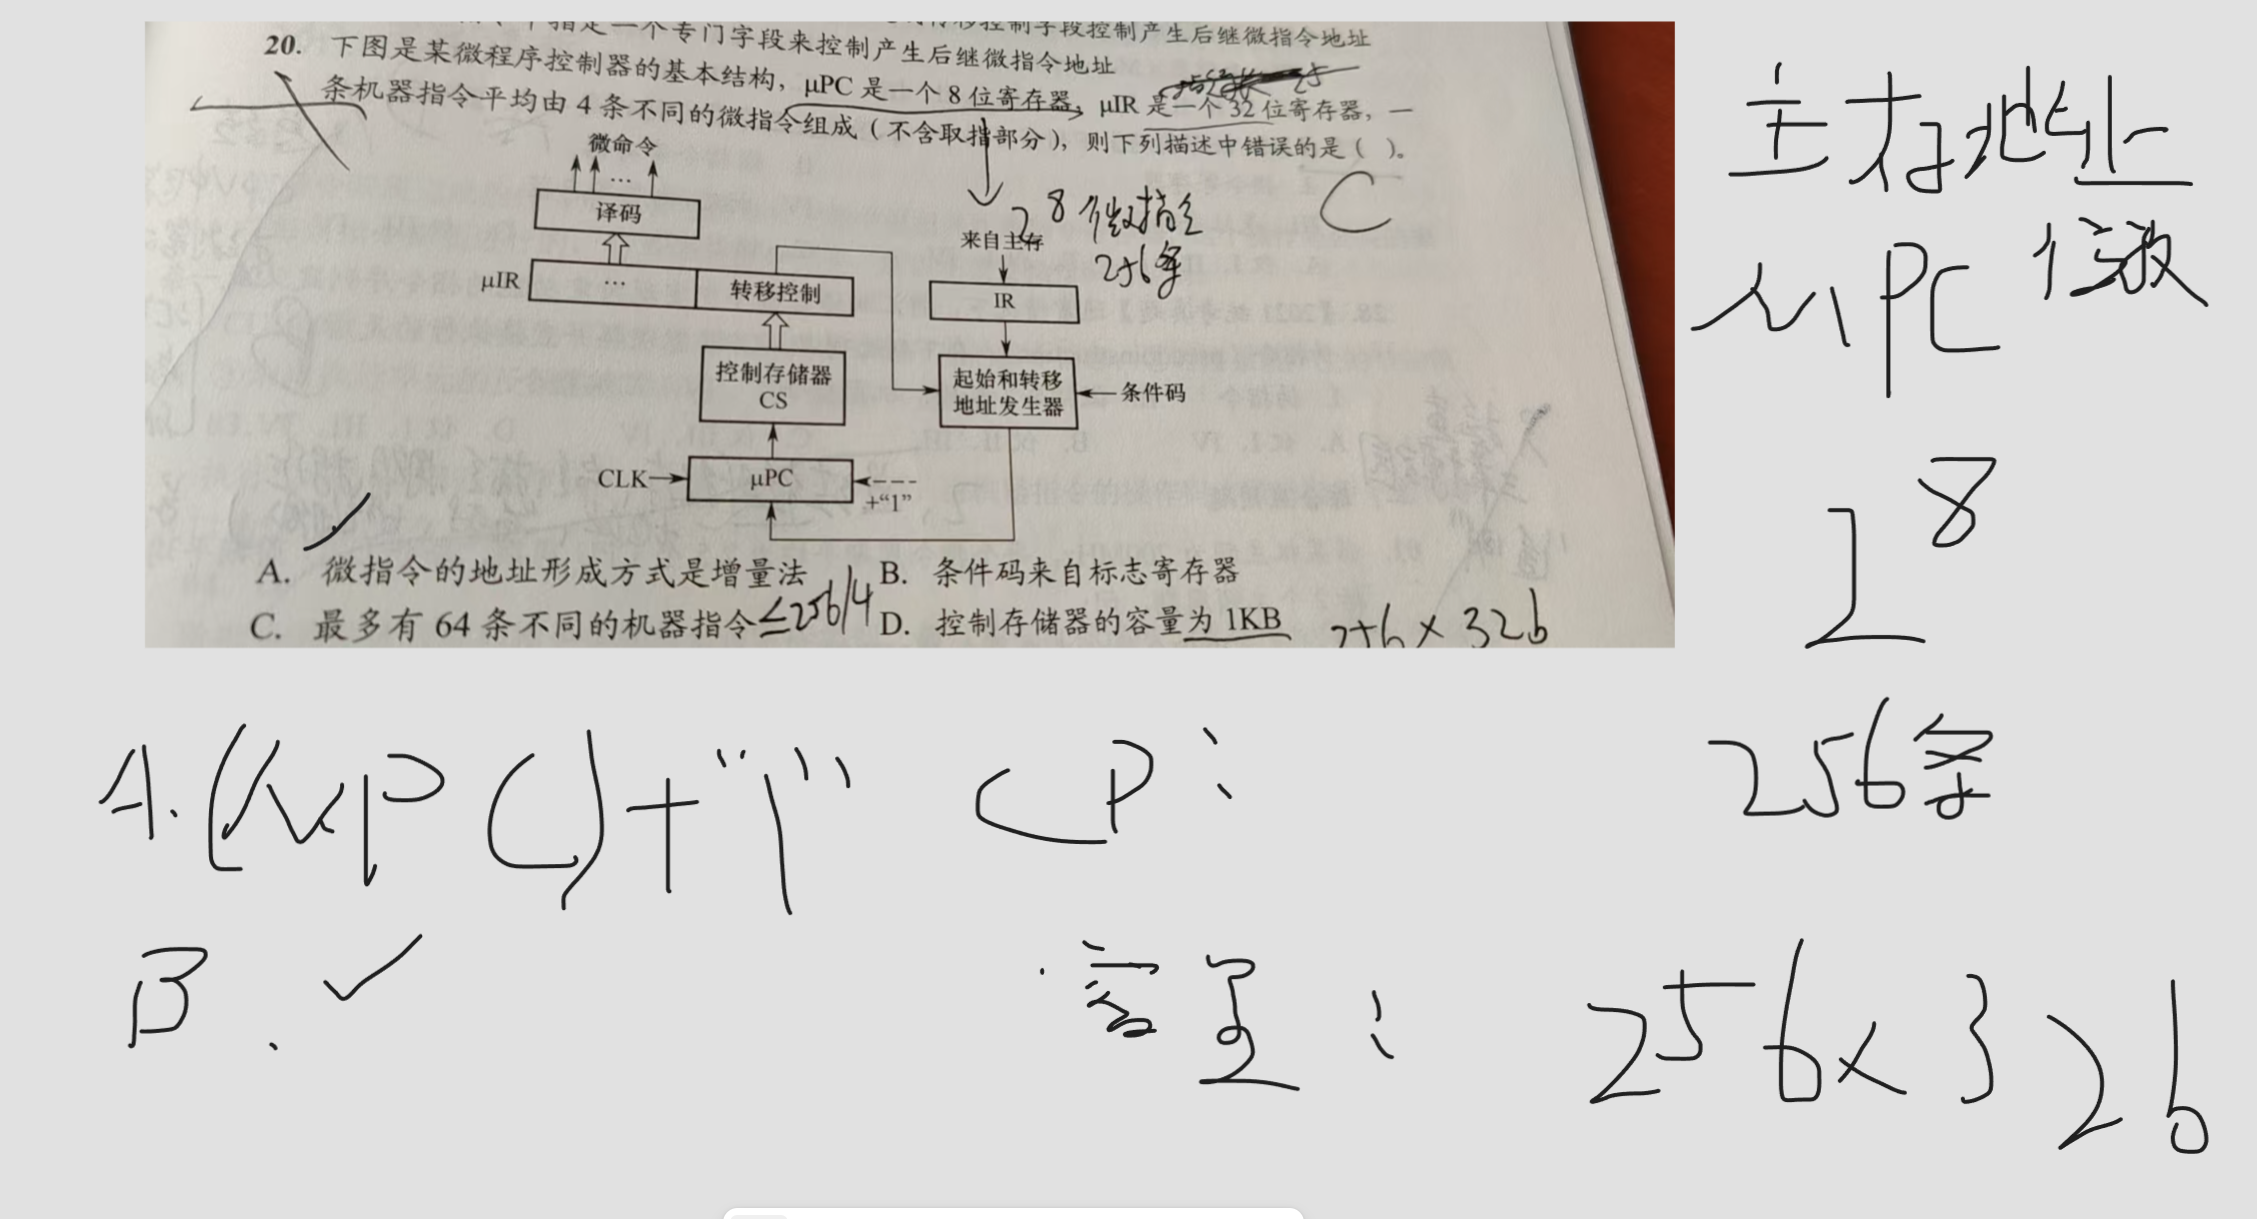 指定一个专门字段来控制产生后继微指令地址
转移控制字段控制产生后继微指令地址
20. 下图是某微程序控制器的基本结构，μPC 是一个 8 位寄存器，μIR 是一个 32 位寄存器，一
条机器指令平均由 4 条不同的微指令组成（不含取指部分），则下列描述中错误的是（ ）。
C
微命令
...
译码
2^8 微指令
256条
来自主存
μIR
...
转移控制
IR
控制存储器
CS
起始和转移
地址发生器
条件码
CLK
μPC
+“1”
A. 微指令的地址形成方式是增量法
B. 条件码来自标志寄存器
C. 最多有 64 条不同的机器指令 ≤256/4
D. 控制存储器的容量为 1KB
256×32b
主存地址
μPC 位数
2^8
256条
A. (μPC)+"1"
CP:
B. ✓
容量: 256×32b